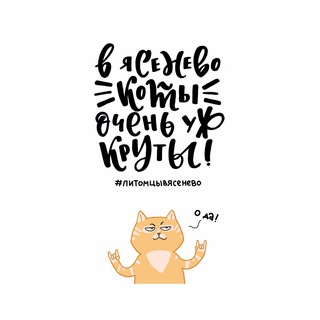 в Ясенево
коты
очень уж
круты!
#питомцывясенево
О да!